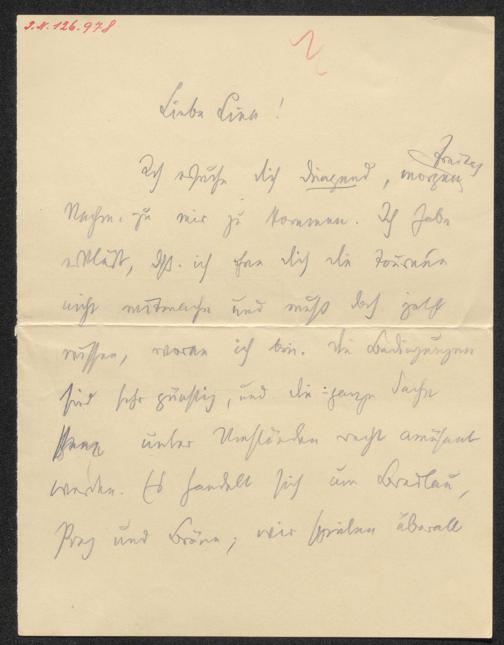 I.N. 126.978
Liebe Lina!
Freitag
Ich ersuche dich dringend, morgen
Nachm. zu mir zu kommen. Ich habe
erklärt, dß. ich ohne dich die Tournée
nicht mitmache und muß doch jetzt
wissen, woran ich bin. Die Bedingungen
sind sehr günstig, und die ganze Sache
kann unter Umständen recht amüsant
werden. Es handelt sich um Breslau,
Prag und Brünn; wir spielen überall